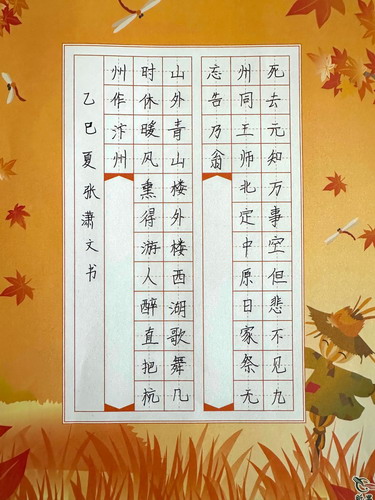 死去元知万事空但悲不见九
州同王师北定中原日家祭无
忘告乃翁
山外青山楼外楼西湖歌舞几
时休暖风熏得游人醉直把杭
州作汴州
乙巳夏张潇文书